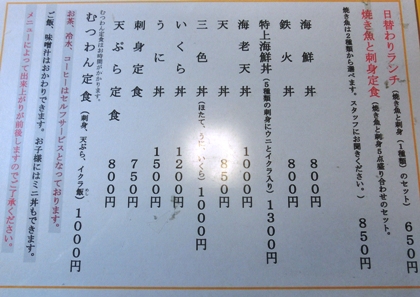 日替わりランチ（焼き魚と刺身（１種類）のセット。 650円
焼き魚と刺身定食（焼き魚と刺身５点盛り合わせのセット。 850円
焼き魚は２種類から選べます。スタッフにお聞きください。）
海鮮丼 800円
鉄火丼 800円
特上海鮮丼（５種類の刺身にウニとイクラ入り）1300円
海老天丼 1000円
天丼 850円
三色丼（ほたて、うに、いくら）1000円
いくら丼 1200円
うに丼 1500円
刺身定食 750円
天ぷら定食 800円
むつわん定食はお時間がかかります。
むつわん定食（刺身、天ぷら、イクラ飯）1000円
お茶、冷水、コーヒーはセルフサービスとなっております。
ご飯、味噌汁はおかわりできます。お子様にはミニ丼もできます。
メニューによって出来上がりが前後しますのでご了承ください。